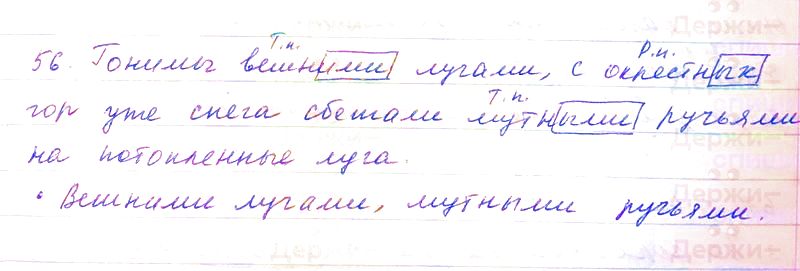 Держи-
Т.п. Р.п.
56. Гонимы вешними лучами, с окрестных
Т.п.
гор уже снега сбежали мутными ручьями
на потопленные луга.
Держи-
• Вешними лучами, мутными ручьями.
Держи- Держи-